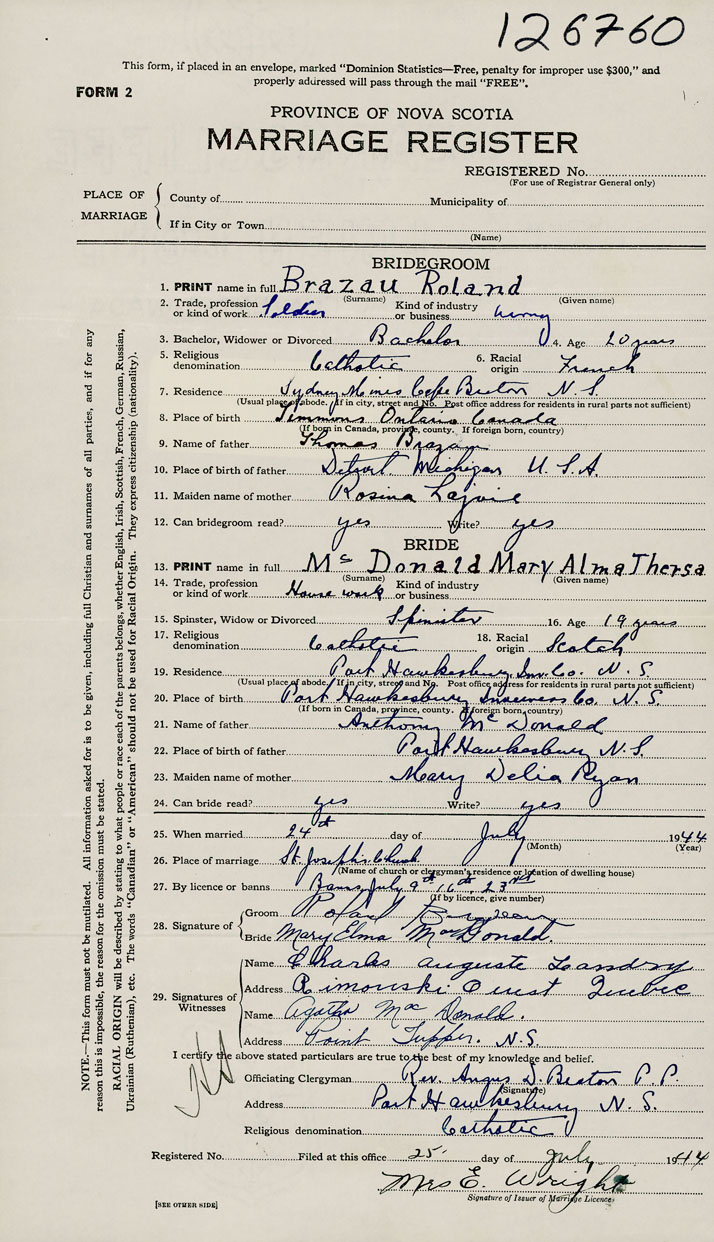 126760
This form, if placed in an envelope, marked “Dominion Statistics—Free, penalty for improper use $300,” and
properly addressed will pass through the mail “FREE”.
FORM 2
PROVINCE OF NOVA SCOTIA
MARRIAGE REGISTER
REGISTERED No.
(For use of Registrar General only)
PLACE OF MARRIAGE
County of Municipality of
If in City or Town
(Name)
BRIDEGROOM
1. PRINT name in full Brazau Roland
(Surname) (Given name)
2. Trade, profession or kind of work Soldier Kind of industry or business Army
3. Bachelor, Widower or Divorced Bachelor 4. Age 20 years
5. Religious denomination Catholic 6. Racial origin French
7. Residence Sydney Mines Cape Breton N. S.
(Usual place of abode. If in city, street and No. Post office address for residents in rural parts not sufficient)
8. Place of birth Timmons Ontario Canada
(If born in Canada, province, county. If foreign born, country)
9. Name of father Thomas Brazau
10. Place of birth of father Detroit Michigan U. S. A.
11. Maiden name of mother Rosina Lajoie
12. Can bridegroom read? yes Write? yes
BRIDE
13. PRINT name in full Mc Donald Mary Alma Thersa
(Surname) (Given name)
14. Trade, profession or kind of work House work Kind of industry or business
15. Spinster, Widow or Divorced Spinster 16. Age 19 years
17. Religious denomination Catholic 18. Racial origin Scotch
19. Residence Port Hawkesbury Inv. Co. N. S
(Usual place of abode. If in city, street and No. Post office address for residents in rural parts not sufficient)
20. Place of birth Port Hawkesbury Inverness Co. N. S.
(If born in Canada, province, county. If foreign born, country)
21. Name of father Anthony Mc Donald
22. Place of birth of father Port Hawkesbury N. S.
23. Maiden name of mother Mary Delia Ryan
24. Can bride read? yes Write? yes
25. When married 24th day of July 1944
(Month) (Year)
26. Place of marriage St. Joseph's Church
(Name of church or clergyman's residence or location of dwelling house)
27. By licence or banns Banns July 9th 16th, 23rd
(If by licence, give number)
28. Signature of
Groom Roland
Bride Mary Elma MacDonald.
29. Signatures of Witnesses
Name Charles Auguste Landry
Address Rimouski Ouest Quebec
Name Agatha Mac Donald.
Address Point Tupper. N.S.
I certify the above stated particulars are true to the best of my knowledge and belief.
Officiating Clergyman Rev. Angus D. Beaton P. P.
(Signature)
Address Port Hawkesbury N. S.
Religious denomination Catholic
Registered No. Filed at this office 25 day of July 1944
Mrs E. Wright
Signature of Issuer of Marriage Licence
[SEE OTHER SIDE]
NOTE.—This form must not be mutilated. All information asked for is to be given, including full Christian and surnames of all parties, and if for any
reason this is impossible, the reason for the omission must be stated.
RACIAL ORIGIN will be described by stating to what people or race each of the parents belongs, whether English, Irish, Scottish, French, German, Russian,
Ukrainian (Ruthenian), etc. The words “Canadian” or “American” should not be used for Racial Origin. They express citizenship (nationality).